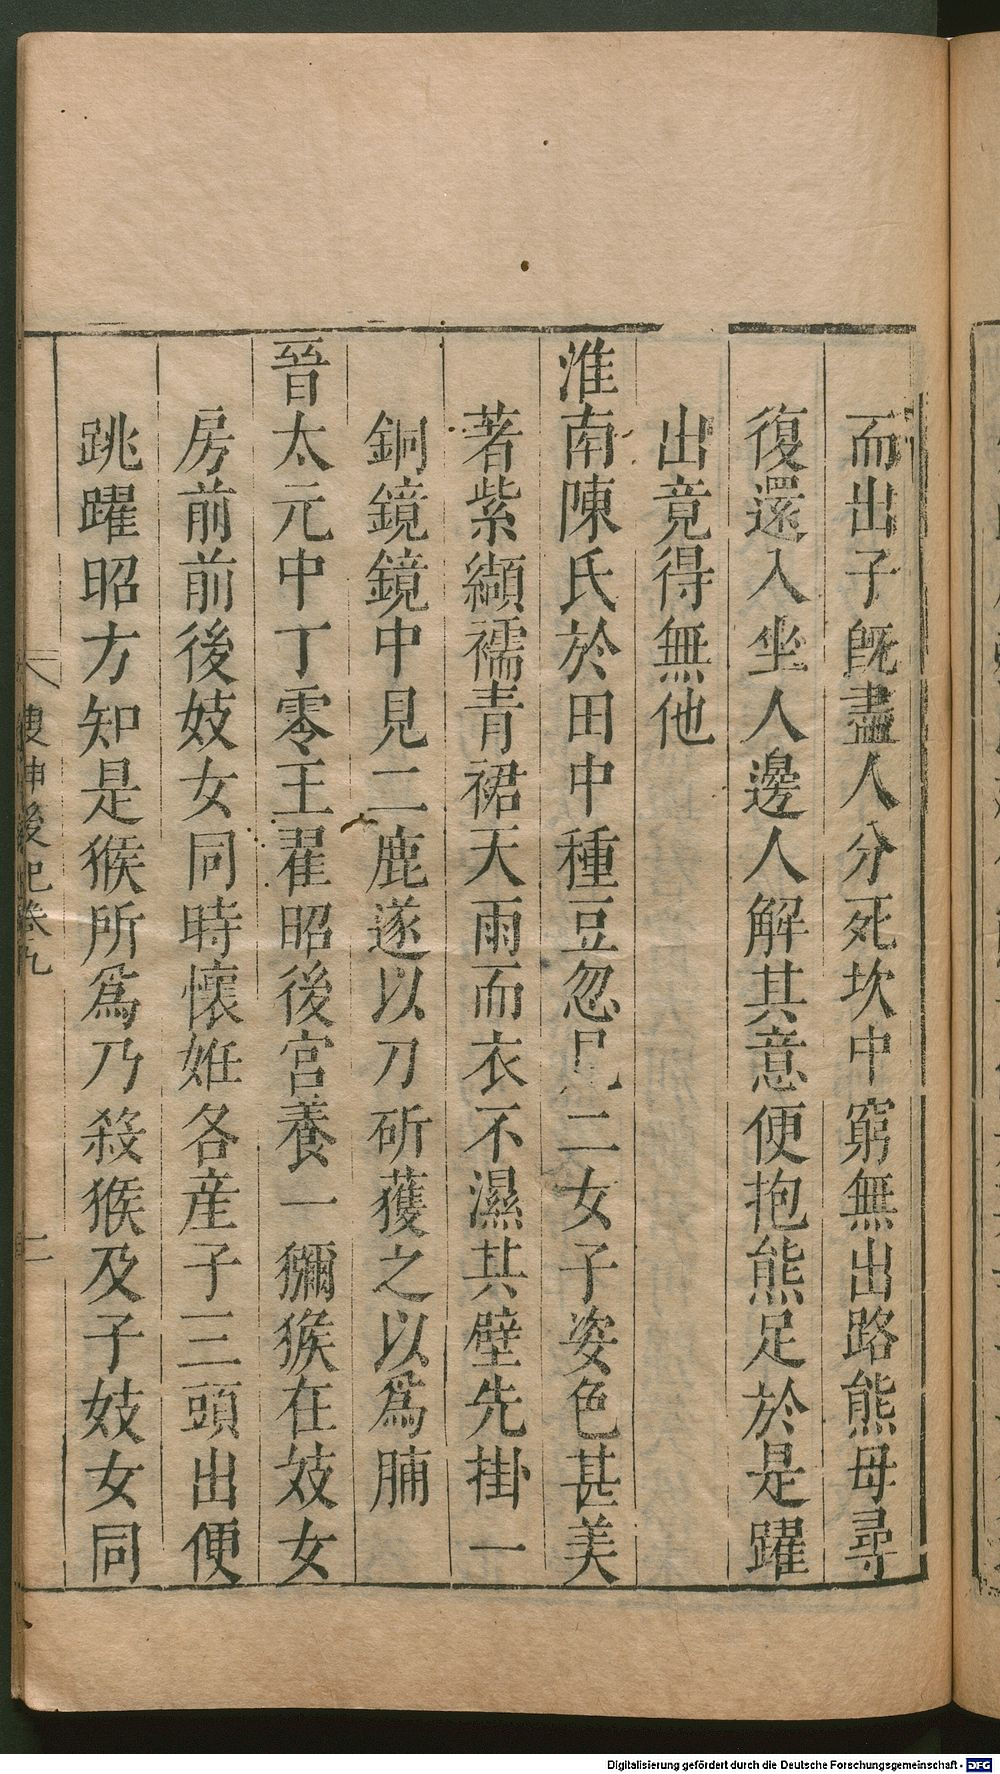 而出子旣盡人分死坎中窮無出路熊母尋
復還入坐人邊人解其意便抱熊足於是躍
出竟得無他
淮南陳氏於田中種豆忽見二女子姿色甚美
著紫纈襦青裙天雨而衣不濕其壁先掛一
銅鏡鏡中見二鹿遂以刀斫獲之以爲脯
晉太元中丁零王翟昭後宮養一獼猴在妓女
房前前後妓女同時懷姙各産子三頭出便
跳躍昭方知是猴所爲乃殺猴及子妓女同
搜神後記卷九
二
Digitalisierung gefördert durch die Deutsche Forschungsgemeinschaft - DFG